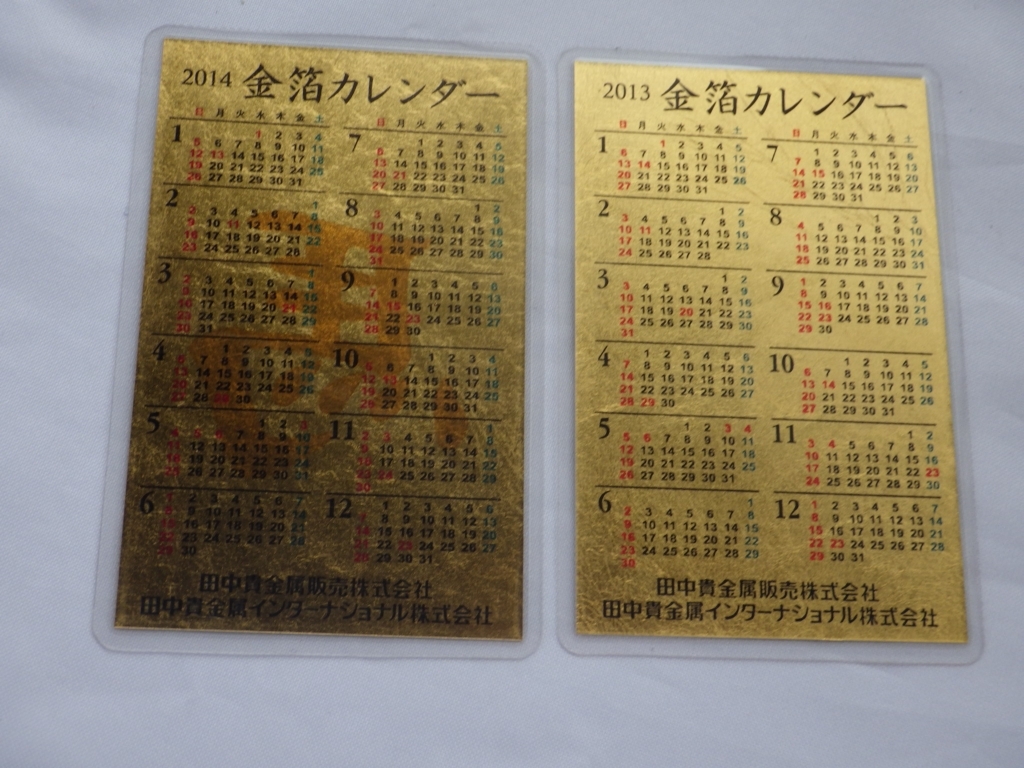 2014 金箔カレンダー
日 月 火 水 木 金 土
1
1 2 3 4
5 6 7 8 9 10 11
12 13 14 15 16 17 18
19 20 21 22 23 24 25
26 27 28 29 30 31
2
1
2 3 4 5 6 7 8
9 10 11 12 13 14 15
16 17 18 19 20 21 22
23 24 25 26 27 28
3
1
2 3 4 5 6 7 8
9 10 11 12 13 14 15
16 17 18 19 20 21 22
23 24 25 26 27 28 29
30 31
4
1 2 3 4 5
6 7 8 9 10 11 12
13 14 15 16 17 18 19
20 21 22 23 24 25 26
27 28 29 30
5
1 2 3
4 5 6 7 8 9 10
11 12 13 14 15 16 17
18 19 20 21 22 23 24
25 26 27 28 29 30 31
6
1 2 3 4 5 6 7
8 9 10 11 12 13 14
15 16 17 18 19 20 21
22 23 24 25 26 27 28
29 30
日 月 火 水 木 金 土
7
1 2 3 4 5
6 7 8 9 10 11 12
13 14 15 16 17 18 19
20 21 22 23 24 25 26
27 28 29 30 31
8
1 2
3 4 5 6 7 8 9
10 11 12 13 14 15 16
17 18 19 20 21 22 23
24 25 26 27 28 29 30
31
9
1 2 3 4 5 6
7 8 9 10 11 12 13
14 15 16 17 18 19 20
21 22 23 24 25 26 27
28 29 30
10
1 2 3 4
5 6 7 8 9 10 11
12 13 14 15 16 17 18
19 20 21 22 23 24 25
26 27 28 29 30 31
11
1
2 3 4 5 6 7 8
9 10 11 12 13 14 15
16 17 18 19 20 21 22
23 24 25 26 27 28 29
30
12
1 2 3 4 5 6
7 8 9 10 11 12 13
14 15 16 17 18 19 20
21 22 23 24 25 26 27
28 29 30 31
田中貴金属販売株式会社
田中貴金属インターナショナル株式会社
2013 金箔カレンダー
日 月 火 水 木 金 土
1
1 2 3 4 5
6 7 8 9 10 11 12
13 14 15 16 17 18 19
20 21 22 23 24 25 26
27 28 29 30 31
2
1 2
3 4 5 6 7 8 9
10 11 12 13 14 15 16
17 18 19 20 21 22 23
24 25 26 27 28
3
1 2
3 4 5 6 7 8 9
10 11 12 13 14 15 16
17 18 19 20 21 22 23
24 25 26 27 28 29 30
31
4
1 2 3 4 5 6
7 8 9 10 11 12 13
14 15 16 17 18 19 20
21 22 23 24 25 26 27
28 29 30
5
1 2 3 4
5 6 7 8 9 10 11
12 13 14 15 16 17 18
19 20 21 22 23 24 25
26 27 28 29 30 31
6
1
2 3 4 5 6 7 8
9 10 11 12 13 14 15
16 17 18 19 20 21 22
23 24 25 26 27 28 29
30
日 月 火 水 木 金 土
7
1 2 3 4 5 6
7 8 9 10 11 12 13
14 15 16 17 18 19 20
21 22 23 24 25 26 27
28 29 30 31
8
1 2 3
4 5 6 7 8 9 10
11 12 13 14 15 16 17
18 19 20 21 22 23 24
25 26 27 28 29 30 31
9
1 2 3 4 5 6 7
8 9 10 11 12 13 14
15 16 17 18 19 20 21
22 23 24 25 26 27 28
29 30
10
1 2 3 4 5
6 7 8 9 10 11 12
13 14 15 16 17 18 19
20 21 22 23 24 25 26
27 28 29 30 31
11
1 2
3 4 5 6 7 8 9
10 11 12 13 14 15 16
17 18 19 20 21 22 23
24 25 26 27 28 29 30
12
1 2 3 4 5 6 7
8 9 10 11 12 13 14
15 16 17 18 19 20 21
22 23 24 25 26 27 28
29 30 31
田中貴金属販売株式会社
田中貴金属インターナショナル株式会社